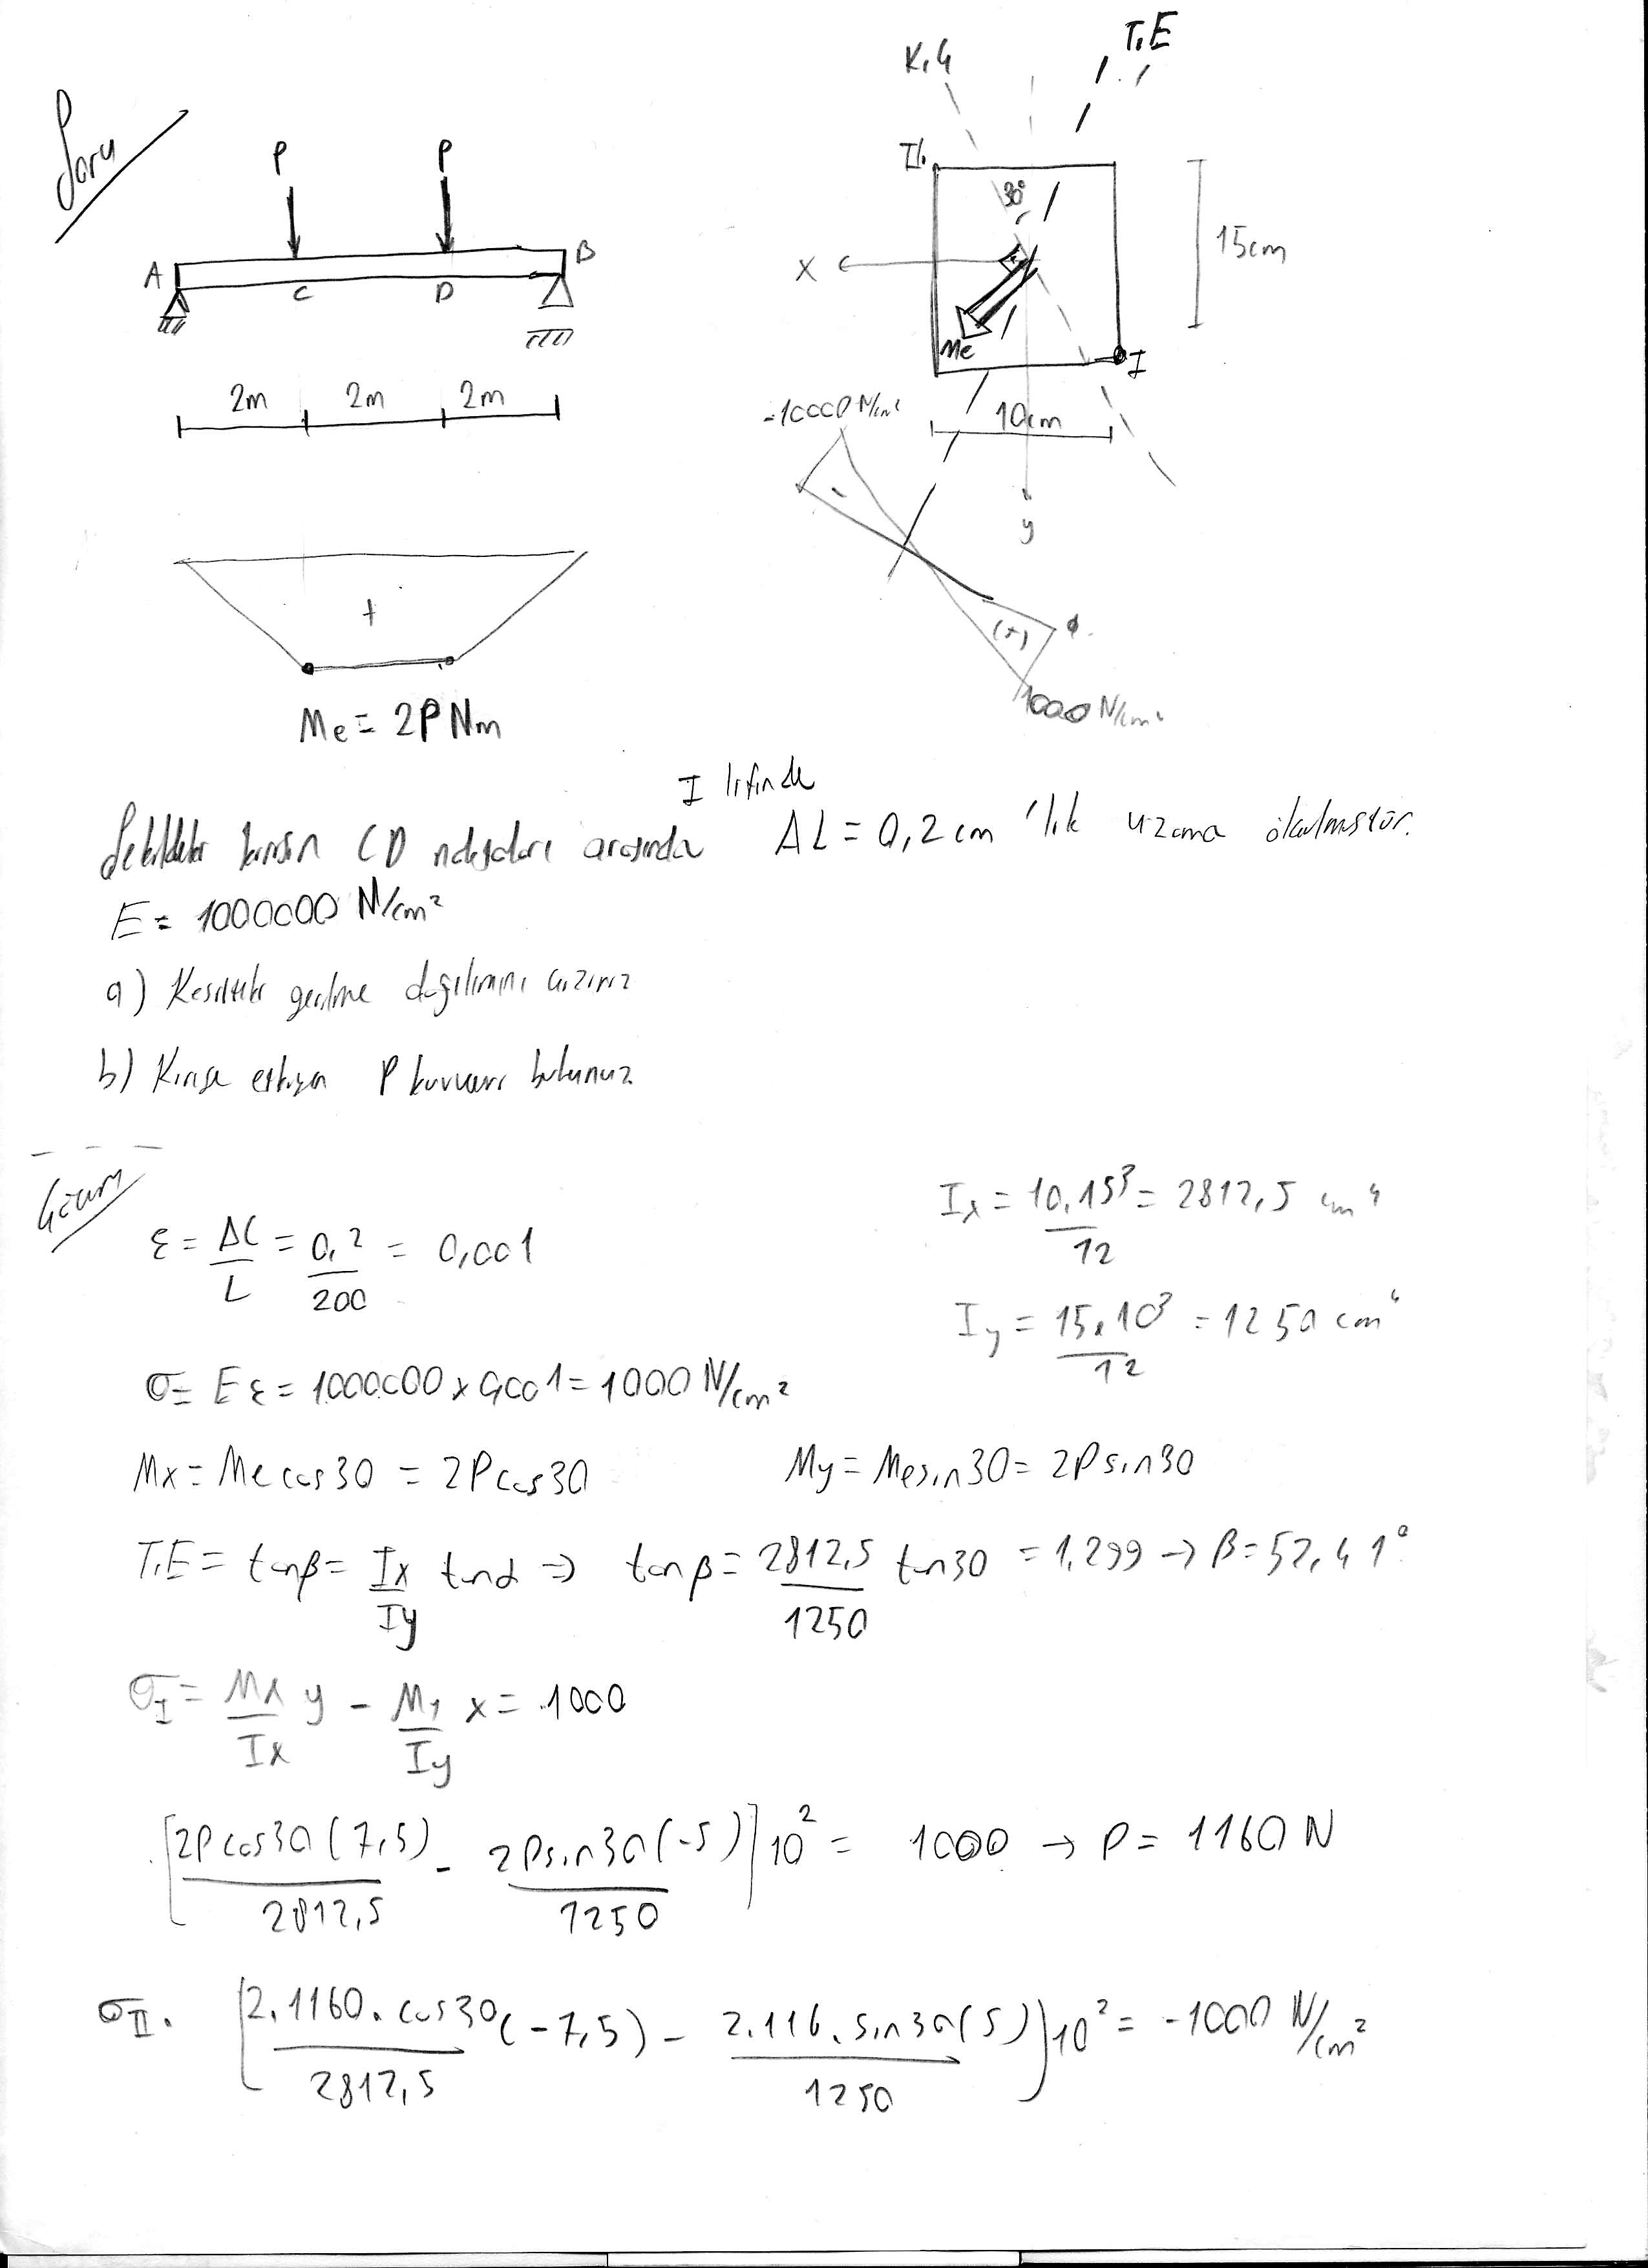 Soru
K.G
T.E
P
P
II.
30°
A
B
C
D
x
15cm
Me
I
2m
2m
2m
-10000 N/cm²
10cm
y
+
-
(+)
1000 N/cm²
Me = 2P Nm
I lifinde
Şekildeki kirişin CD noktaları arasında ΔL = 0,2 cm 'lik uzama ölçülmüştür.
E = 1000000 N/cm²
a) Kesitteki gerilme dağılımını çiziniz
b) Kirişe etkiyen P kuvvetini bulunuz
Çözüm
Ix = 10.15³/12 = 2812,5 cm⁴
ε = ΔL/L = 0,2/200 = 0,001
Iy = 15x10³/12 = 1250 cm⁴
σ = Eε = 1000000 x 0,001 = 1000 N/cm²
Mx = Me cos30 = 2P cos30 My = Me sin30 = 2P sin30
T.E = tanβ = Ix/Iy tanα => tanβ = 2812,5/1250 tan30 = 1,299 → β = 52,41°
σI = Mx/Ix y - My/Iy x = 1000
[2P cos30 (7,5)/2812,5 - 2P sin30 (-5)/1250] 10² = 1000 → P = 1160 N
σII. [2.1160.cos30 (-7,5)/2812,5 - 2.116.sin30 (5)/1250] 10² = -1000 N/cm²